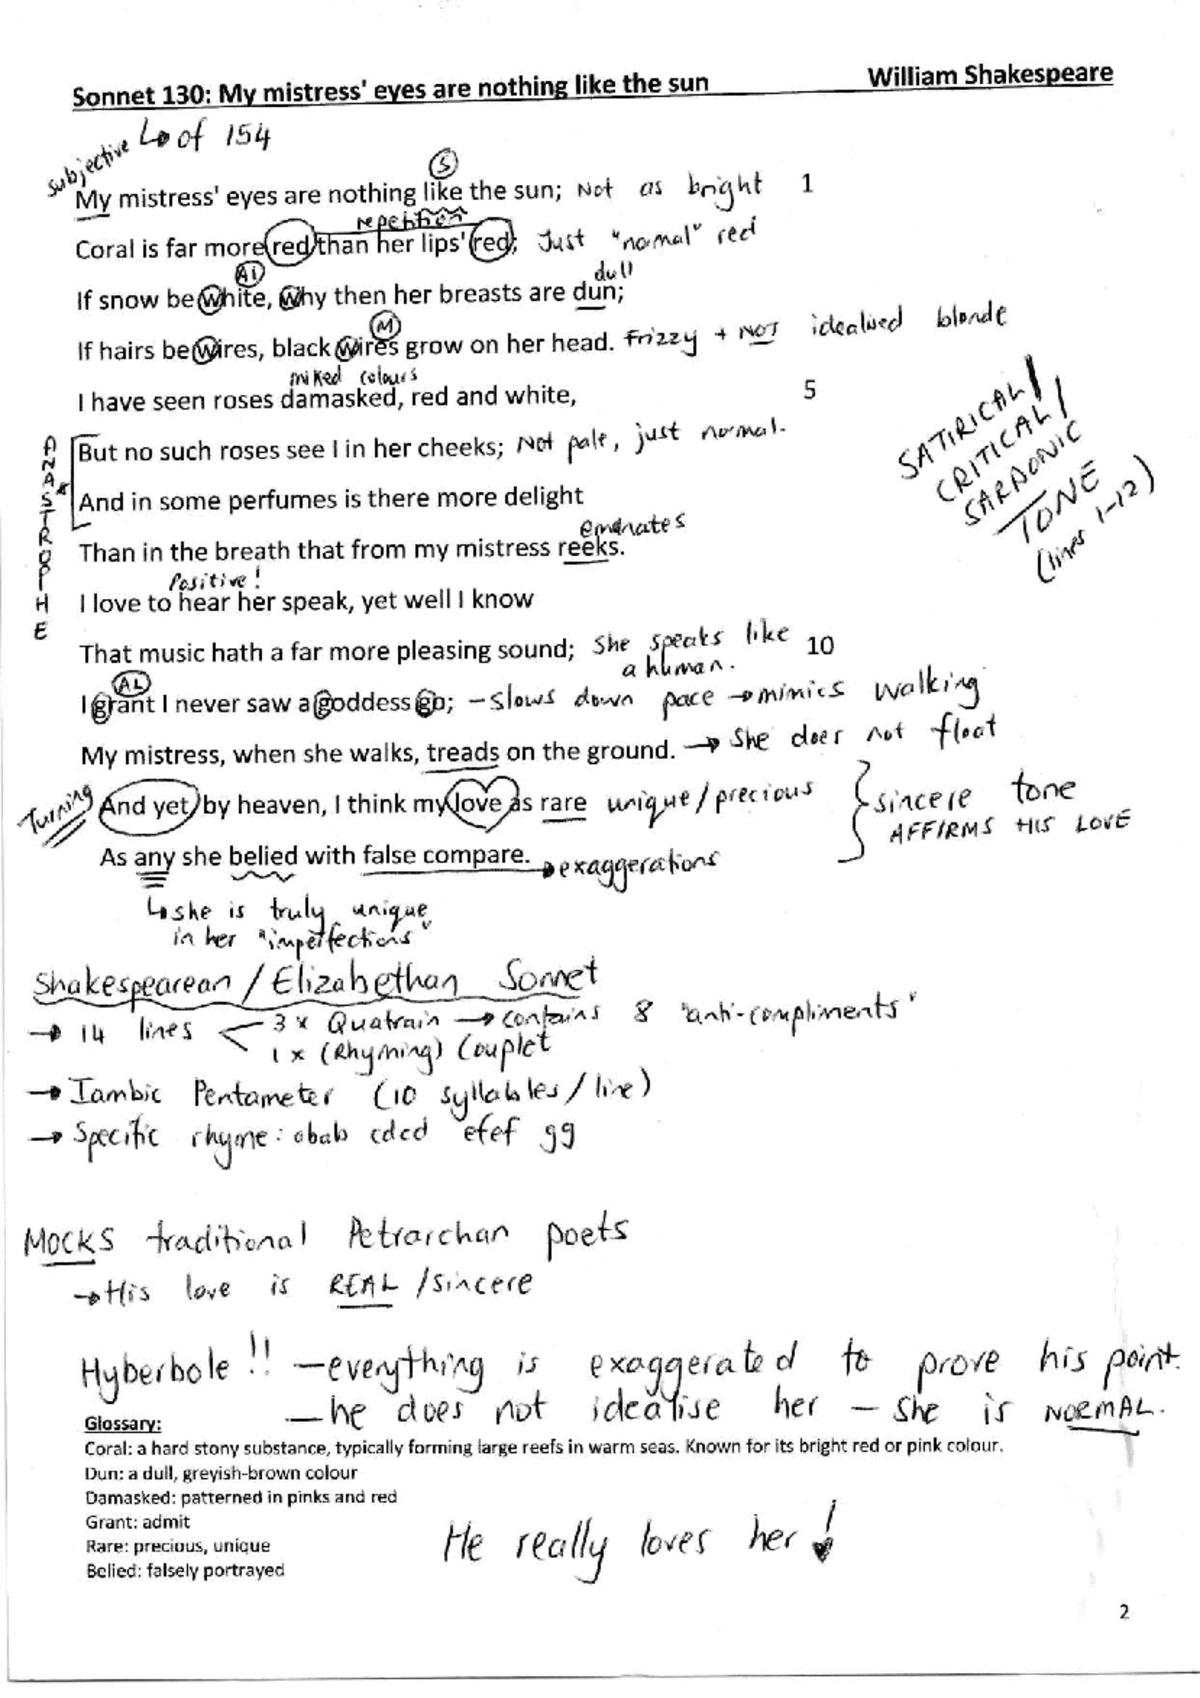 Sonnet 130: My mistress' eyes are nothing like the sun William Shakespeare
↳ of 154
subjective
S
My mistress' eyes are nothing like the sun; Not as bright 1
repetition
Coral is far more red than her lips' red; Just "normal" red
Al dull
If snow be white, why then her breasts are dun;
M
If hairs be wires, black wires grow on her head. Frizzy + NOT idealised blonde
mixed colours
I have seen roses damasked, red and white, 5
But no such roses see I in her cheeks; Not pale, just normal.
And in some perfumes is there more delight
emanates
Than in the breath that from my mistress reeks.
Positive!
I love to hear her speak, yet well I know
That music hath a far more pleasing sound; She speaks like a human. 10
AL
I grant I never saw a goddess go; - slows down pace → mimics walking
My mistress, when she walks, treads on the ground. → She does not float
Turning And yet, by heaven, I think my love as rare unique/precious
As any she belied with false compare. → exaggerations
ANASTROPHE
SATIRICAL/
CRITICAL/
SARDONIC
TONE
(lines 1-12)
sincere tone
AFFIRMS HIS LOVE
↳ she is truly unique
in her "imperfections"
Shakespearean / Elizabethan Sonnet
→ 14 lines < 3 x Quatrain → contains 8 "anti-compliments"
1 x (Rhyming) Couplet
→ Iambic Pentameter (10 syllables/line)
→ Specific rhyme: abab cdcd efef gg
MOCKS traditional Petrarchan poets
→ His love is REAL /sincere
Hyberbole!! - everything is exaggerated to prove his point.
- he does not idealise her - She is NORMAL.
Glossary:
Coral: a hard stony substance, typically forming large reefs in warm seas. Known for its bright red or pink colour.
Dun: a dull, greyish-brown colour
Damasked: patterned in pinks and red
Grant: admit
Rare: precious, unique
Belied: falsely portrayed
He really loves her!
2